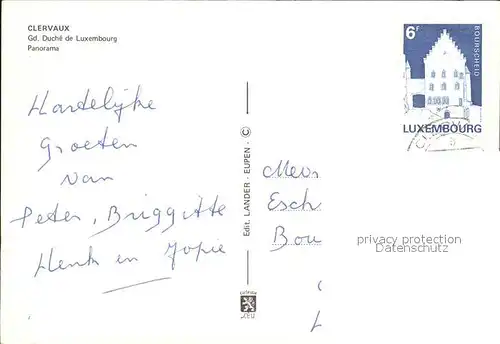 CLERVAUX
Gd. Duché de Luxembourg
Panorama
6F
BOURSCHEID
LUXEMBOURG
Hartelijke
Groeten
van
Peter, Briggitte
Henk en Jopie
Edit. LANDER - EUPEN - ©
Esch
Bou
privacy protection
Datenschutz